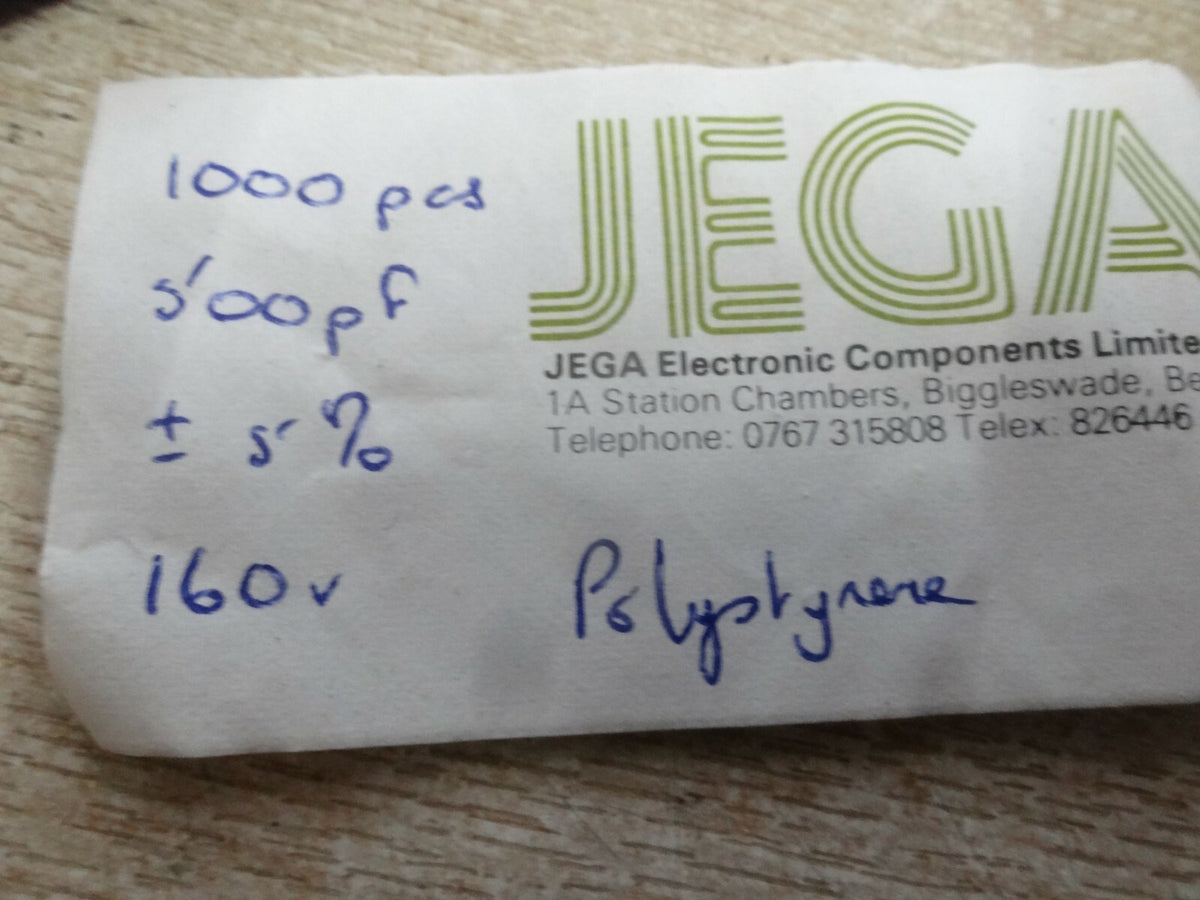 1000 pcs
500 pf
± 5 %
160 v
JEGA
JEGA Electronic Components Limite
1A Station Chambers, Biggleswade, Be
Telephone: 0767 315808 Telex: 826446
Polystyrene